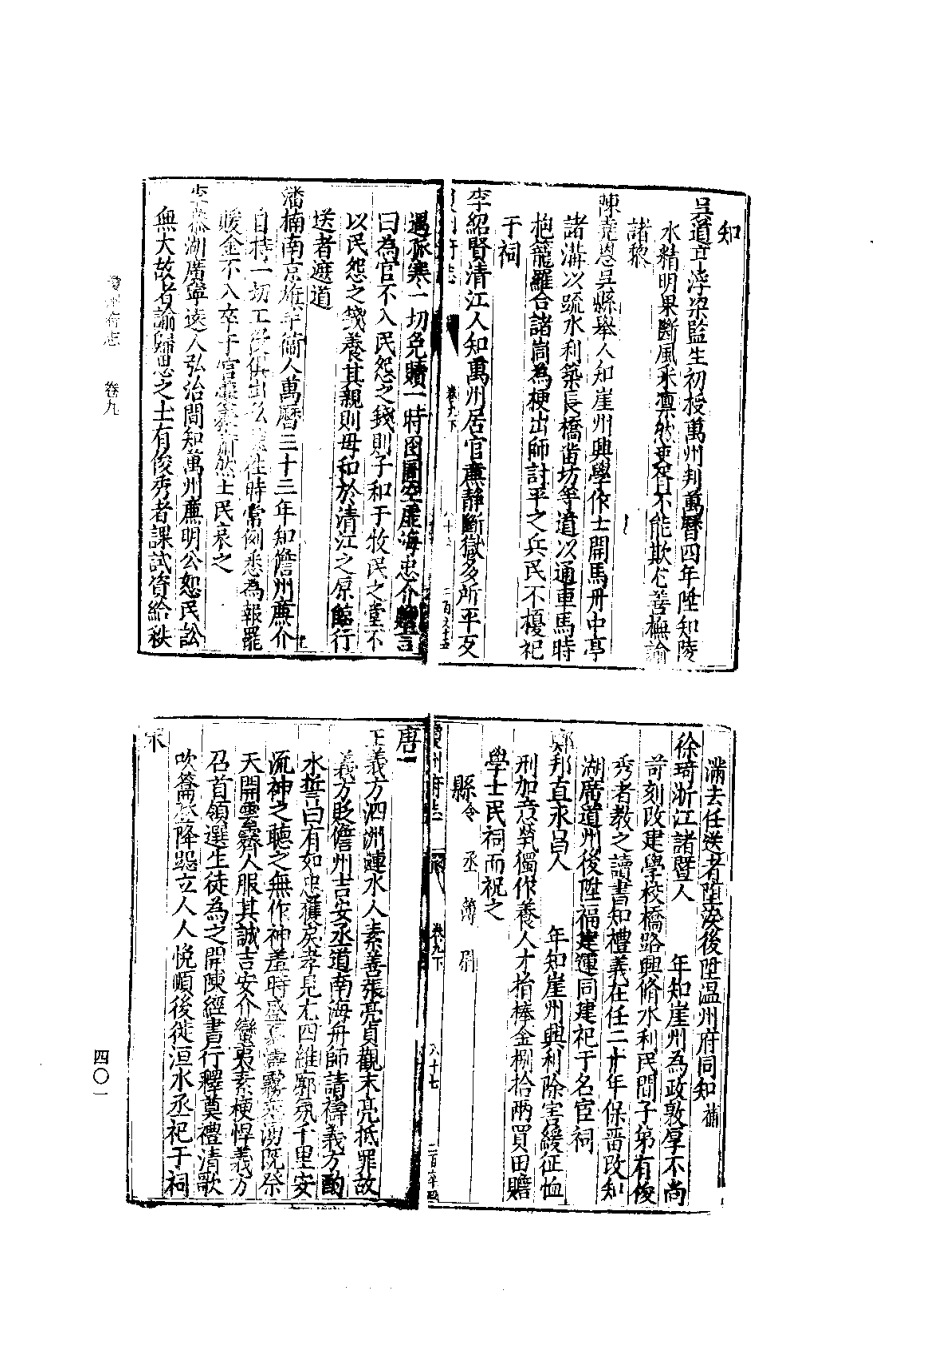 知
吳道亨浮梁監生初授萬州判萬曆四年陞知陵
水精明果斷風采凛然吏胥不能欺尤善撫諭
諸黎
陳堯恩吳縣舉人知崖州興學作士開馬丹中亭
諸溝以疏水利築長橋凿坊等道以通車馬時
抱籠羅合諸峝為梗出師討平之兵民不擾祀
于祠
李紹賢清江人知萬州居官亷静斷獄多所平反
卷九下
遇祁寒一切免贖一時囹圄空虛海忠介贈言
曰為官不入民怨之錢則子和于牧民之堂不
以民怨之錢養其親則母和於清江之原臨行
送者遮道
潘楠南京旗手衞人萬曆三十三年知儋州亷介
自持一切工 往時常例悉為報罷
賧金不入卒于官 士民哀之
李恭湖廣寧遠人弘治間知萬州亷明公恕民訟
無大故者諭歸思之士有俊秀者課試資給秩
卷九
滿去任送者墮淚後陞温州府同知
徐琦浙江諸暨人 年知崖州為政敦厚不尚
苛刻改建學校橋路興脩水利民間子弟有俊
秀者教之讀書知禮義在任二十年保晋改知
湖廣道州後陞福建運同建祀于名宦祠
鄭邦直永昌人 年知崖州興利除害緩征恤
刑加意煢獨作養人才捐俸金捌拾兩買田贍
學士民祠而祝之
縣令 丞 簿 尉
瓊州府志 卷九下 六十七
唐
王義方泗洲漣水人素善張亮貞觀末亮抵罪故
義方貶儋州吉安丞道南海舟師請禱義方酌
水誓曰有如忠獲戾孝見尤四維廓氛千里安
流神之聽之無作神羞時盛夏濤霧 湧既祭
天開雲霽人服其誠吉安介蠻夷素梗悍義方
召首領選生徒為之開陳經書行釋奠禮清歌
吹籥 降跽立人人悅順後徙洹水丞祀于祠
宋
四〇一